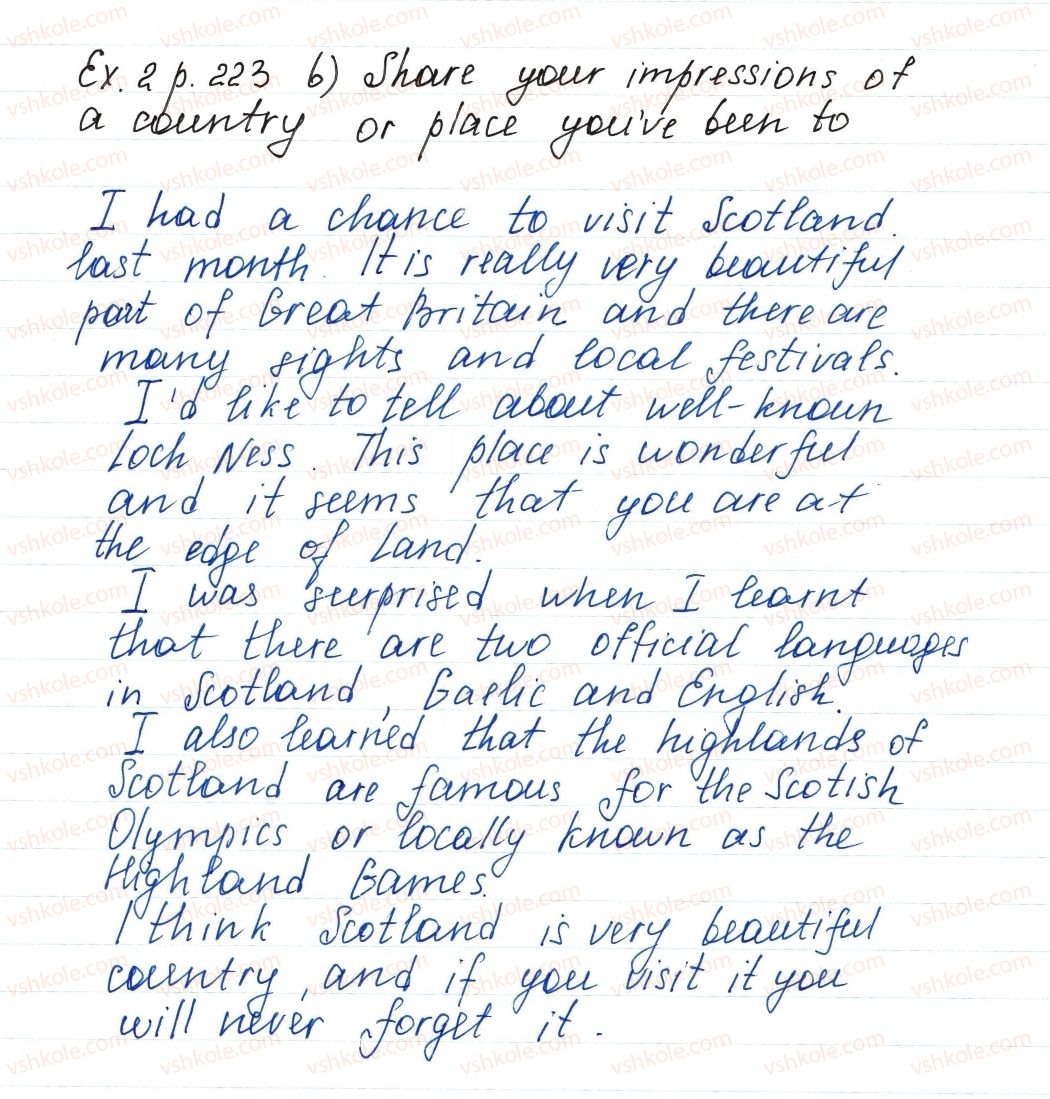 Ex. 2 p. 223 b) Share your impressions of
a country or place you've been to
I had a chance to visit Scotland
last month. It is really very beautiful
part of Great Britain and there are
many sights and local festivals.
I'd like to tell about well-known
Loch Ness. This place is wonderful
and it seems that you are at
the edge of Land.
I was surprised when I learnt
that there are two official languages
in Scotland, Gaelic and English.
I also learned that the highlands of
Scotland are famous for the Scotish
Olympics or locally known as the
Highland Games.
I think Scotland is very beautiful
country, and if you visit it you
will never forget it.